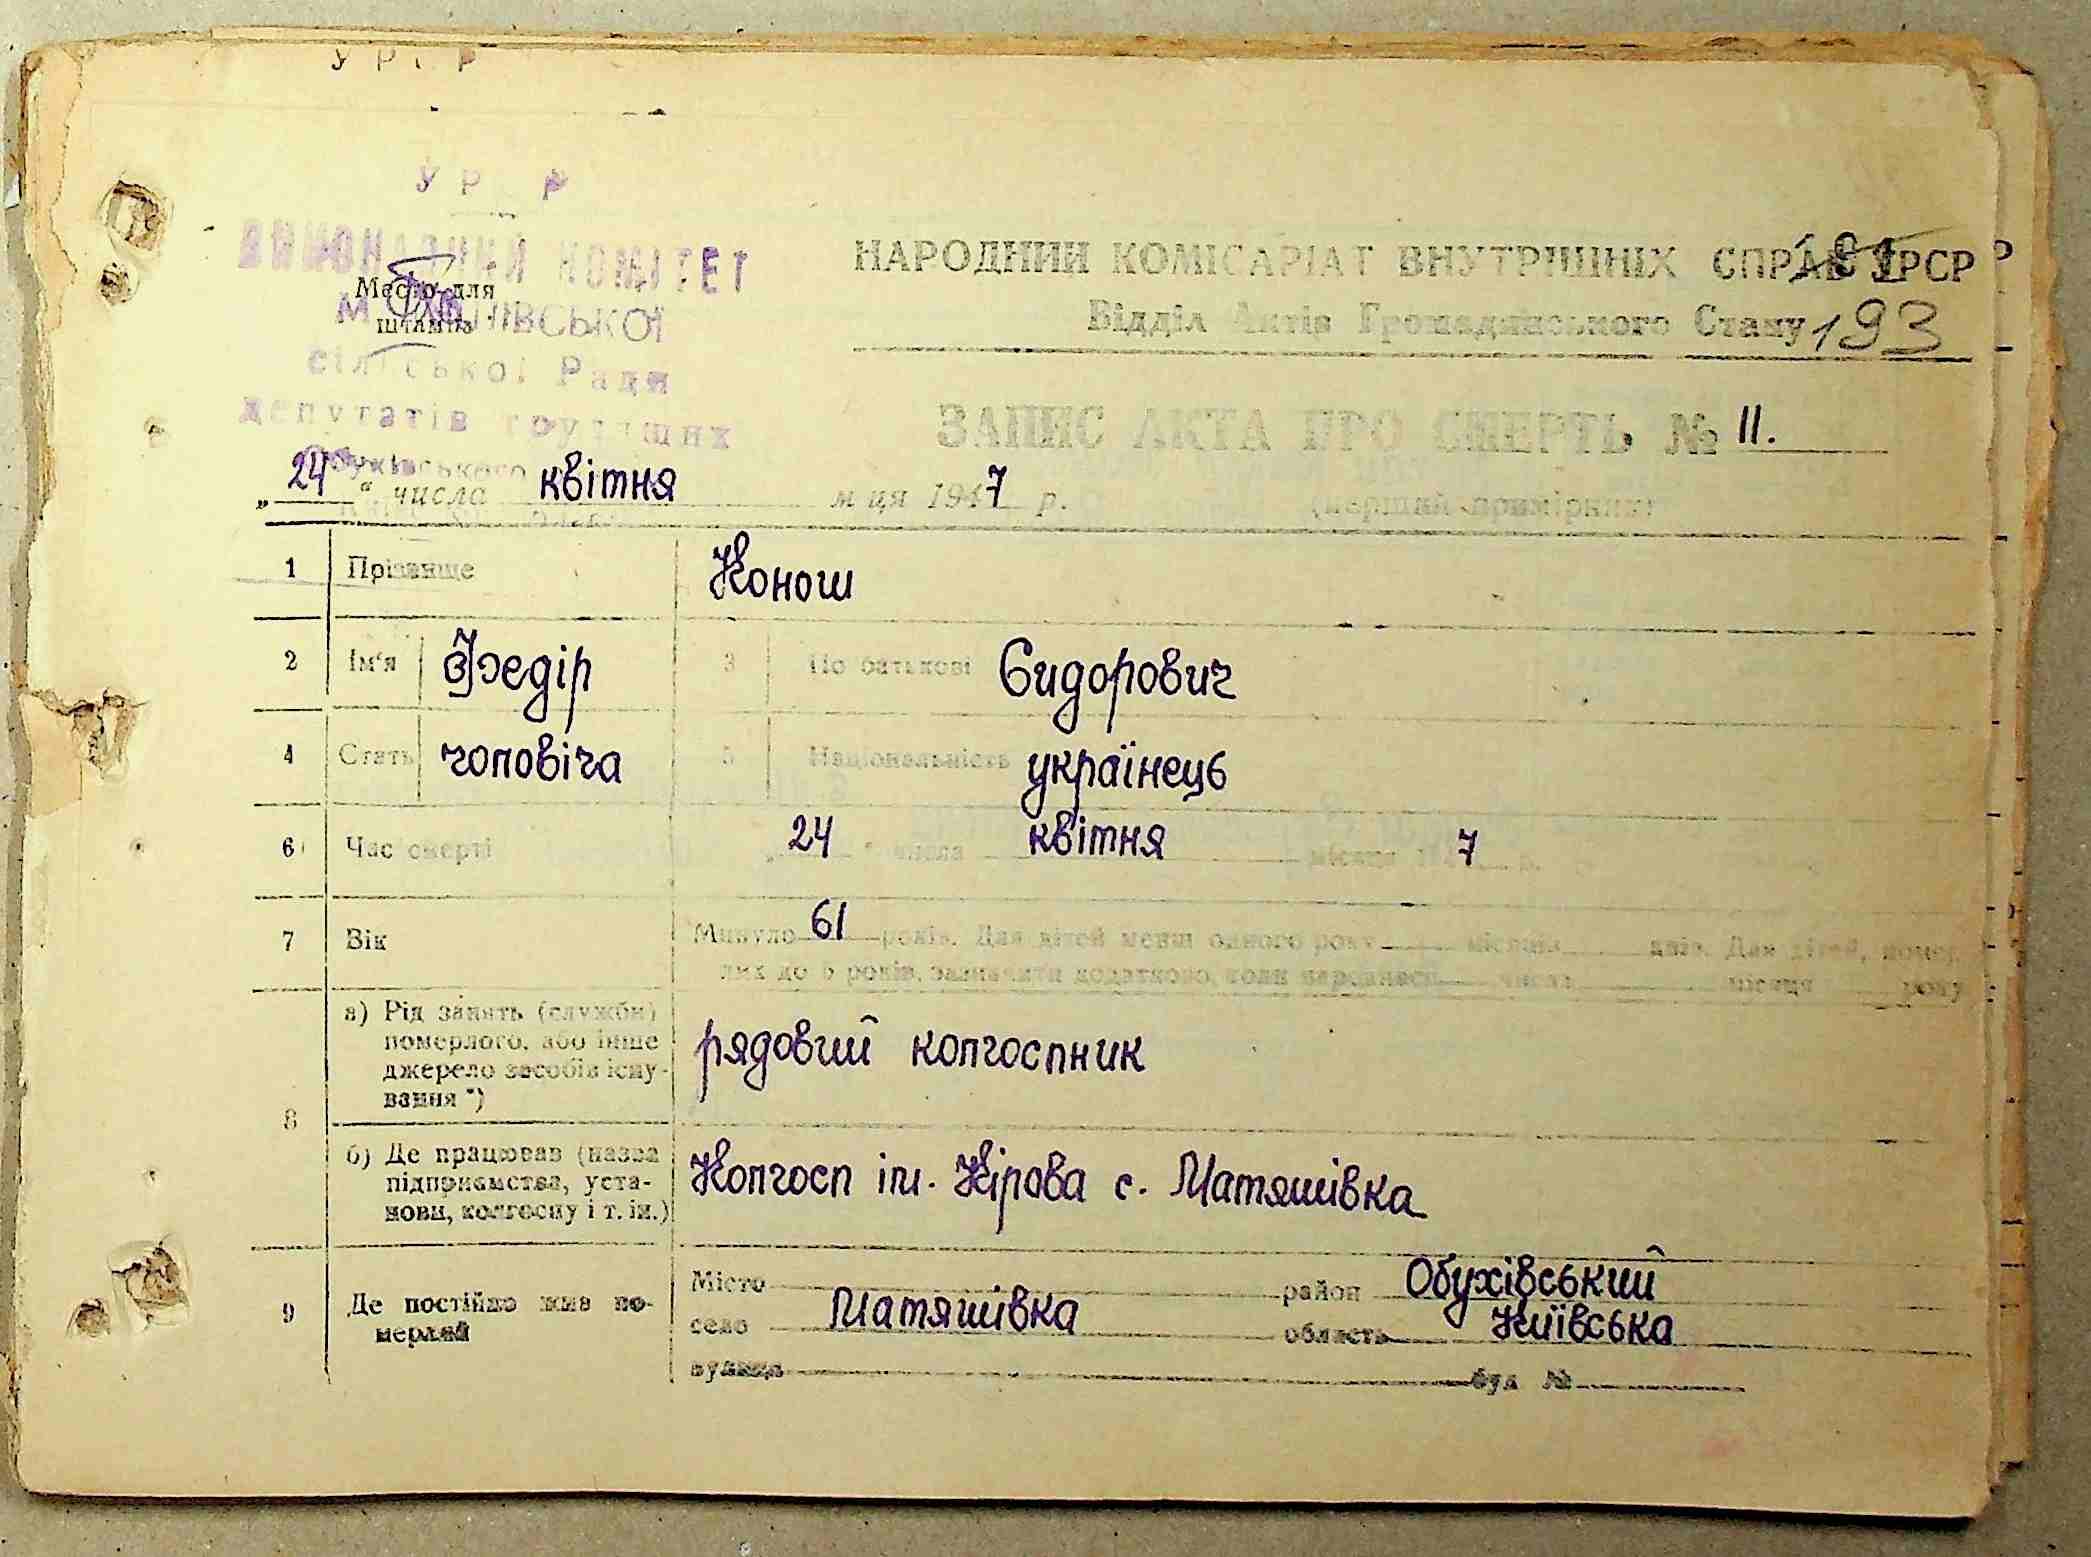 У Р Р
У Р Р
ВИКОНАВЧИЙ КОМІТЕТ
Место для
штампа
сільської Ради
депутатів трудящих
Обухівського
НАРОДНИЙ КОМІСАРІАТ ВНУТРІШНІХ СПРАВ УРСР
Відділ Актів Громадянського Стану 193
ЗАПИС АКТА ПРО СМЕРТЬ № 11.
„24“ числа квітня м-ця 1947 р. (перший примірник)
1 Прізвище Конош
2 Ім'я Федір 3 По батькові Сидорович
4 Стать чоловіча 5 Національність українець
6 Час смерті „24“ числа квітня місяця 1947 р.
7 Вік Минуло 61 років. Для дітей менш одного року місяців днів. Для дітей, помер-
лих до 5 років, зазначити додатково, коли народився числа місяця року
8 а) Рід занять (служби)
померлого, або інше
джерело засобів існу-
вання *)
рядовий колгоспник
б) Де працював (назва
підприємства, уста-
нови, колгоспу і т. ін.)
Колгосп ім. Кірова с. Матяшівка
9 Де постійно жив по-
мерлий
Місто район Обухівський
село Матяшівка область Київська
вулиця буд №